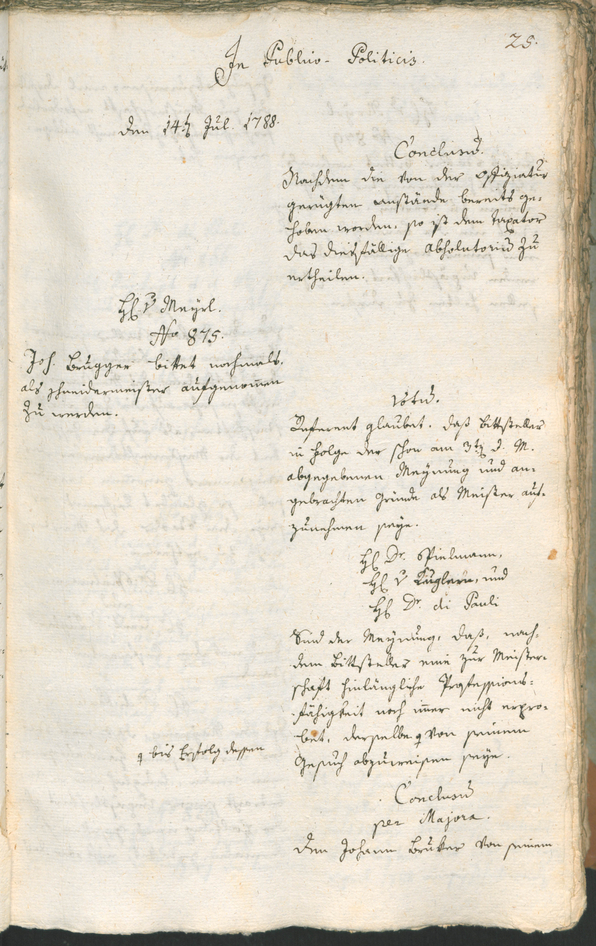 25.
In Publico-Politicis.
den 14t Jul. 1788.
Conclusum.
Nachdem die von der Offiziatur
gerügten Anstände bereits ge-
hoben worden, so ist dem Taxator
das diesfällige Absolutorium zu
ertheilen.
H. v Meyrl.
No 875.
Joh. Brugger bittet nochmals,
als Schneidermeister aufgenommen
zu werden.
Votum.
Referent glaubet, daß Bittsteller
in Folge der schon am 3t d. M.
abgegebenen Meynung und an-
gebrachten Gründe als Meister auf-
zunehmen seye.
H. Dr. Spielmann,
H. v Kuglern, und
H. Dr. di Pauli
Sind der Meynung, daß, nach-
dem Bittsteller eine zur Meister-
schaft hinlängliche Professions-
fähigkeit noch immer nicht erpro-
bet, derselbe von seinem
bis Erfolg dessen
Gesuch abzuweisen seye.
Conclusum
per Majora.
Den Johann Bruker von seinem